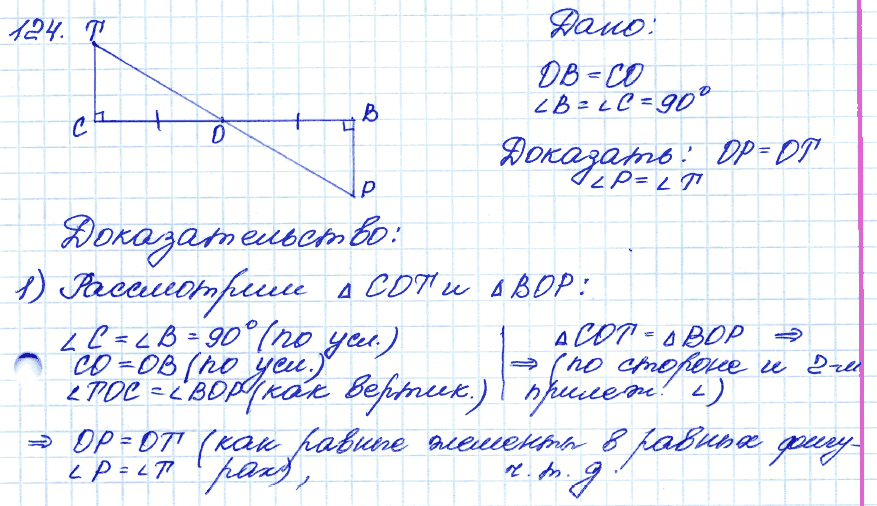 124.
T
C
O
B
P
Дано:
OB = CO
∠B = ∠C = 90°
Доказать: OP = OT
∠P = ∠T
Доказательство:
1) Рассмотрим △COT и △BOP:
∠C = ∠B = 90° (по усл.)
CO = OB (по усл.)
∠TOC = ∠BOP (как вертик.)
△COT = △BOP ⇒
⇒ (по стороне и 2-м
прилеж. ∠)
⇒ OP = OT (как равные элементы в равных фигу-
∠P = ∠T рах), ч.т.д.